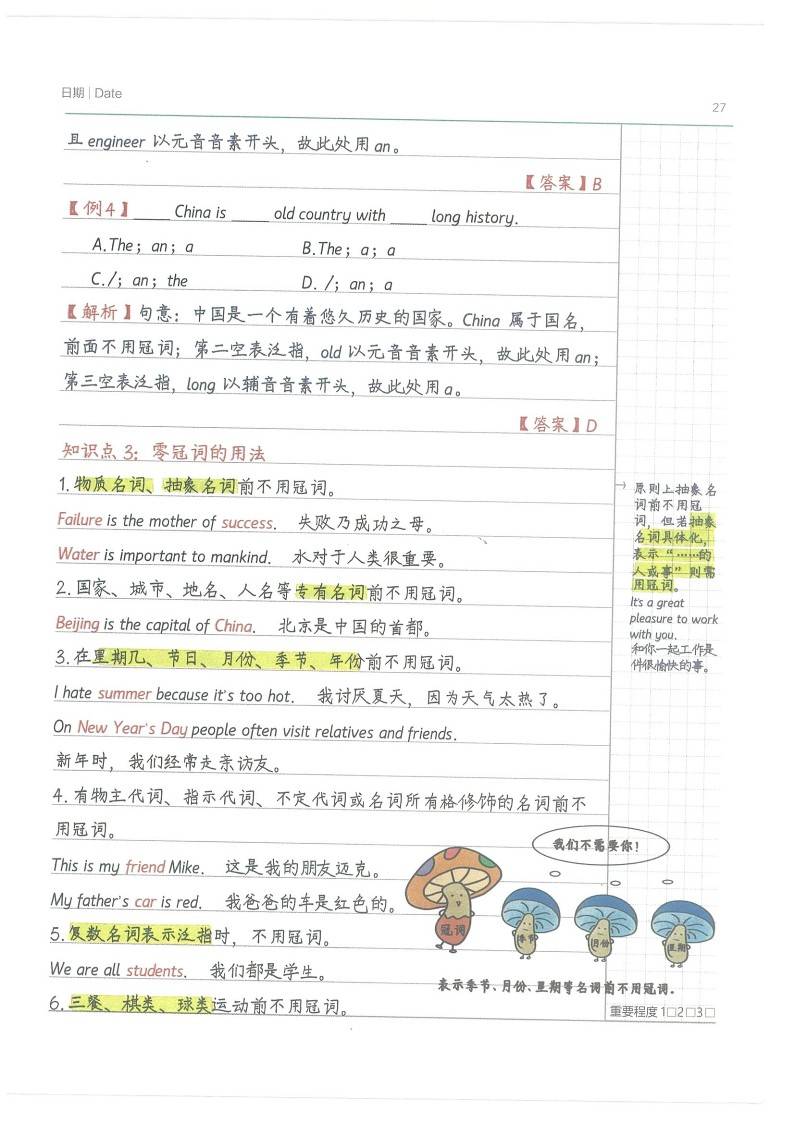 日期 | Date
27
且 engineer 以元音音素开头，故此处用 an。
【答案】B
【例4】_____ China is _____ old country with _____ long history.
A.The；an；a B.The；a；a
C./；an；the D. /；an；a
【解析】句意：中国是一个有着悠久历史的国家。China 属于国名，
前面不用冠词；第二空表泛指，old 以元音音素开头，故此处用 an；
第三空表泛指，long 以辅音音素开头，故此处用 a。
【答案】D
知识点 3：零冠词的用法
1.物质名词、抽象名词前不用冠词。
Failure is the mother of success. 失败乃成功之母。
Water is important to mankind. 水对于人类很重要。
2.国家、城市、地名、人名等专有名词前不用冠词。
Beijing is the capital of China. 北京是中国的首都。
3.在星期几、节日、月份、季节、年份前不用冠词。
I hate summer because it's too hot. 我讨厌夏天，因为天气太热了。
On New Year's Day people often visit relatives and friends.
新年时，我们经常走亲访友。
4.有物主代词、指示代词、不定代词或名词所有格修饰的名词前不
用冠词。
This is my friend Mike. 这是我的朋友迈克。
My father's car is red. 我爸爸的车是红色的。
5.复数名词表示泛指时，不用冠词。
We are all students. 我们都是学生。
6.三餐、棋类、球类运动前不用冠词。
→ 原则上抽象名
词前不用冠
词，但若抽象
名词具体化，
表示“……的
人或事”则需
用冠词。
It's a great
pleasure to work
with you.
和你一起工作是
件很愉快的事。
我们不需要你！
冠词
季节
月份
星期
表示季节、月份、星期等名词前不用冠词。
重要程度 1□2□3□